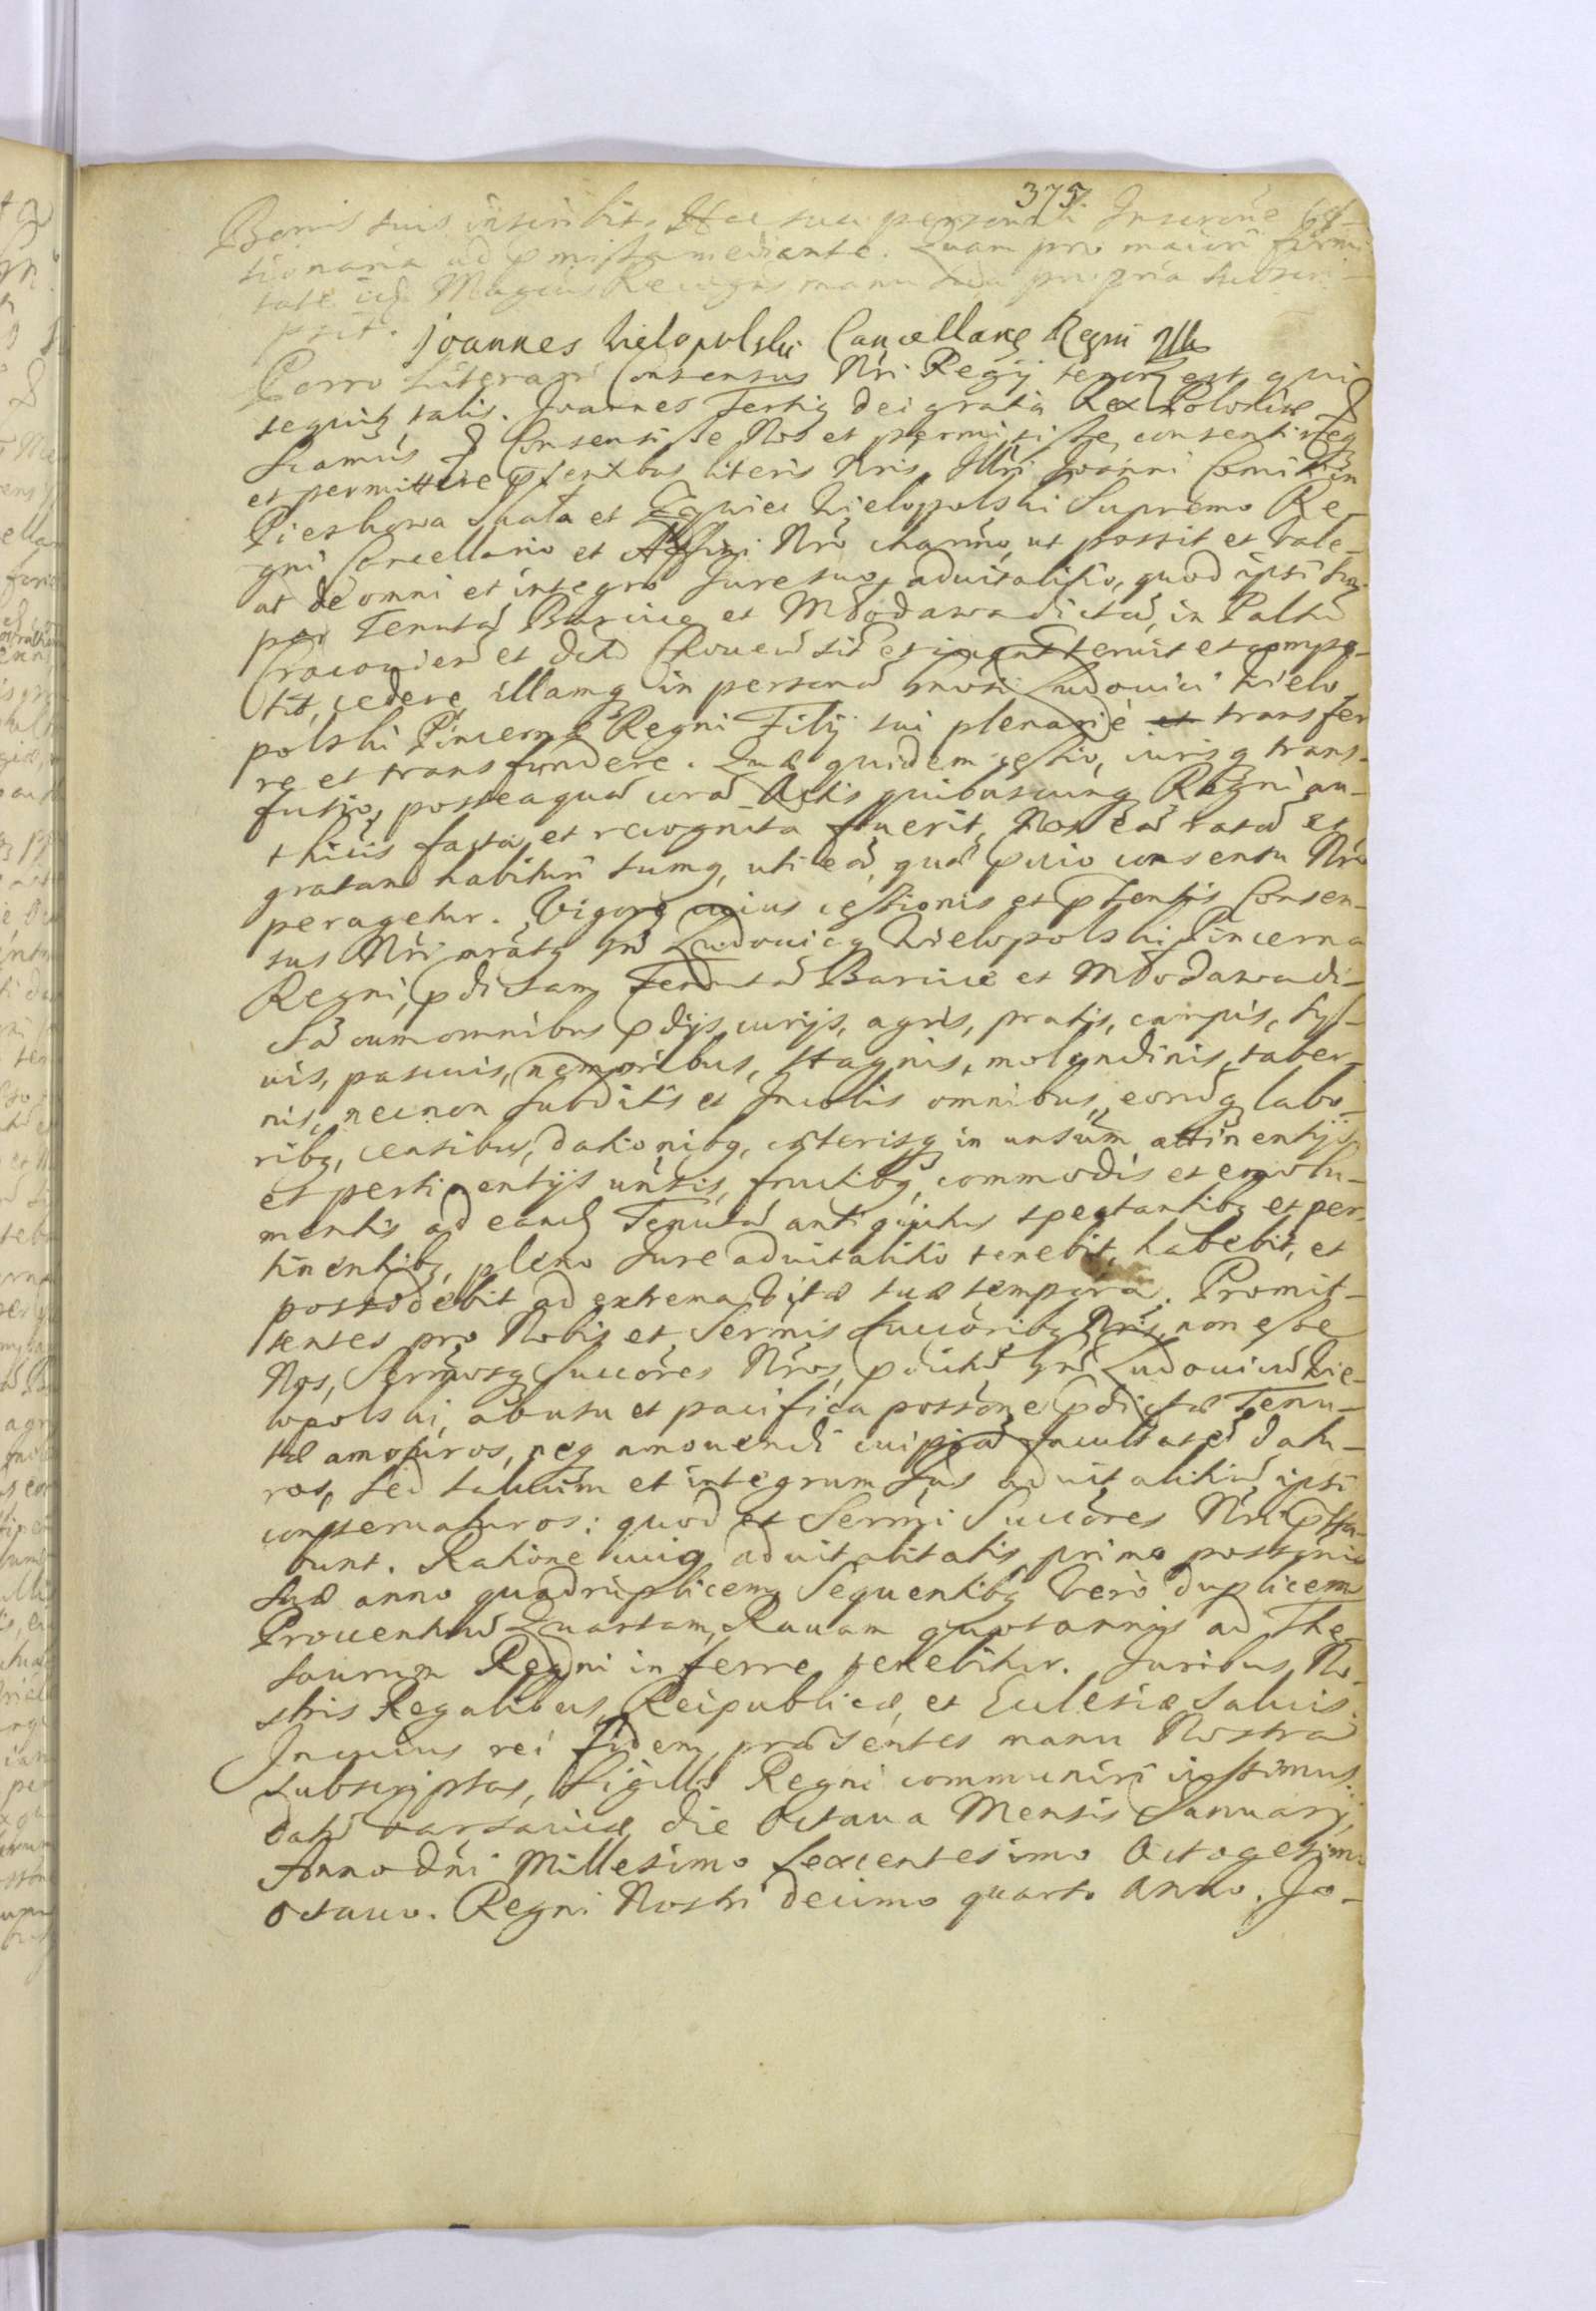 375.
Bonis suis inscribit, Hac sua personali Inscrine
tionaria ad pmissa mediante. Quam pro maiori firmi-
tate idē Magcus Recogns manu sua propria subscri-
psit. Joannes Wielopolski Cancellarius Regni Mp
Porro Literarū Consensus Nri Regij tenor est qui
sequitz talis. Joannes Tertig Dei gratia Rex Poloniæ &
Sciamus & Consensisse Nos et permisisse, consentireq
et permittere pntibus literis Nris, Illri Joanni Comiti in
Pieskowa Skała et Zywiec Wielopolski Supremo Re-
gni Cancellario et Affini Nro charmo, ut possit et vale-
at de omni et integro Jure suo, aduitalitio, quod ipsi su-
per Tenutā Barcice et Młodawa dictā, in Paltu
Cracouien et Distū Czchouien sitā
tit, cedere, illamq in personā Gnosi Ludouici Wielo-
polski Pincernæ Regni Filij sui plenariè et transfer
re et transfundere. Quæ quidem cessio, iurisq trans-
fusio, posteaquā corā Actis quibuscunq Regni au-
thicis facta et recognita fuerit, Nos eā ratā et
gratam habituri sumq, uti eā, quæ pcuio consensu Nro
peragetur. Vigore cuius cessionis et pntis Consen-
sus Nri mratz Gn̄ Ludouicq Wielopolski Pincerna
Regni, pdictam Tenutā Barcice et Młodawa di-
ctā cum omnibus pdijs, curijs, agris, pratis, campis, syl-
uis, pascuis, nemoribus, stagnis, molendinis, taber-
nis, necnon subditis et Incolis omnibus, eorūq labo-
ribq, censibus, dationibq, cæterisq in unsum attinentijs
et pertinentijs unsis, fructibq, commodis et emolu-
mentis ad eand Tenutā antiquitus spectantibq et per-
tinentibq, pleno Jure aduitalitio tenebit, habebit, et
possidebit ad extrema Vitæ suæ tempora. Promit-
tentes pro Nobis et Sermis Succoribq Nris, non esse
Nos, Sermosq Succores Nros, pdictū Gn̄ Ludouicū Wie-
lopolski, ab usu et pacifica possone pdictæ Tenu-
tæ amoturos, neq amouendi cuipiā facultatē datu-
ros, sed saluum et integrum Jus aduitalitiū ipsi
conseruaturos: quod et Sermi Succores Nri pstā-
bunt. Ratione cuiq aduitalitatis primo possonis
suæ anno quadruplicem, Sequentibq verò duplicem
Prouentuū Quartam, Rauam quotannis ad The-
saurum Regni inferre tenebitur. Juribus No-
stris Regalibus, Reipublicæ, et Ecclesiæ saluis.
In cuius rei fidem, præsentes manu Nostra
subscriptas, Sigillo Regni communiri iussimus.
Datū Varsauiæ, die Octaua Mensis Januarij
Anno Dni Millesimo Sexcentesimo Octogesimo
Octauo. Regni Nostri decimo quarto Anno. Jo-